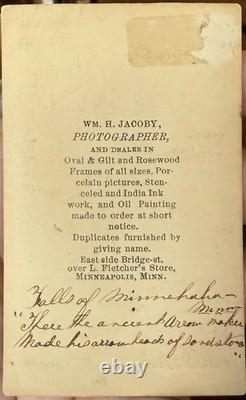 WM. H. JACOBY,
PHOTOGRAPHER,
AND DEALER IN
Oval & Gilt and Rosewood
Frames of all sizes, Por-
celain pictures, Sten-
celed and India Ink
work, and Oil Painting
made to order at short
notice.
Duplicates furnished by
giving name.
East side Bridge-st.
over L. Fletcher's Store,
MINNEAPOLIS, MINN.
Falls of Minnehaha
Minn
"There the ancient Arrow maker
Made his arrow heads of sandstone
ebay